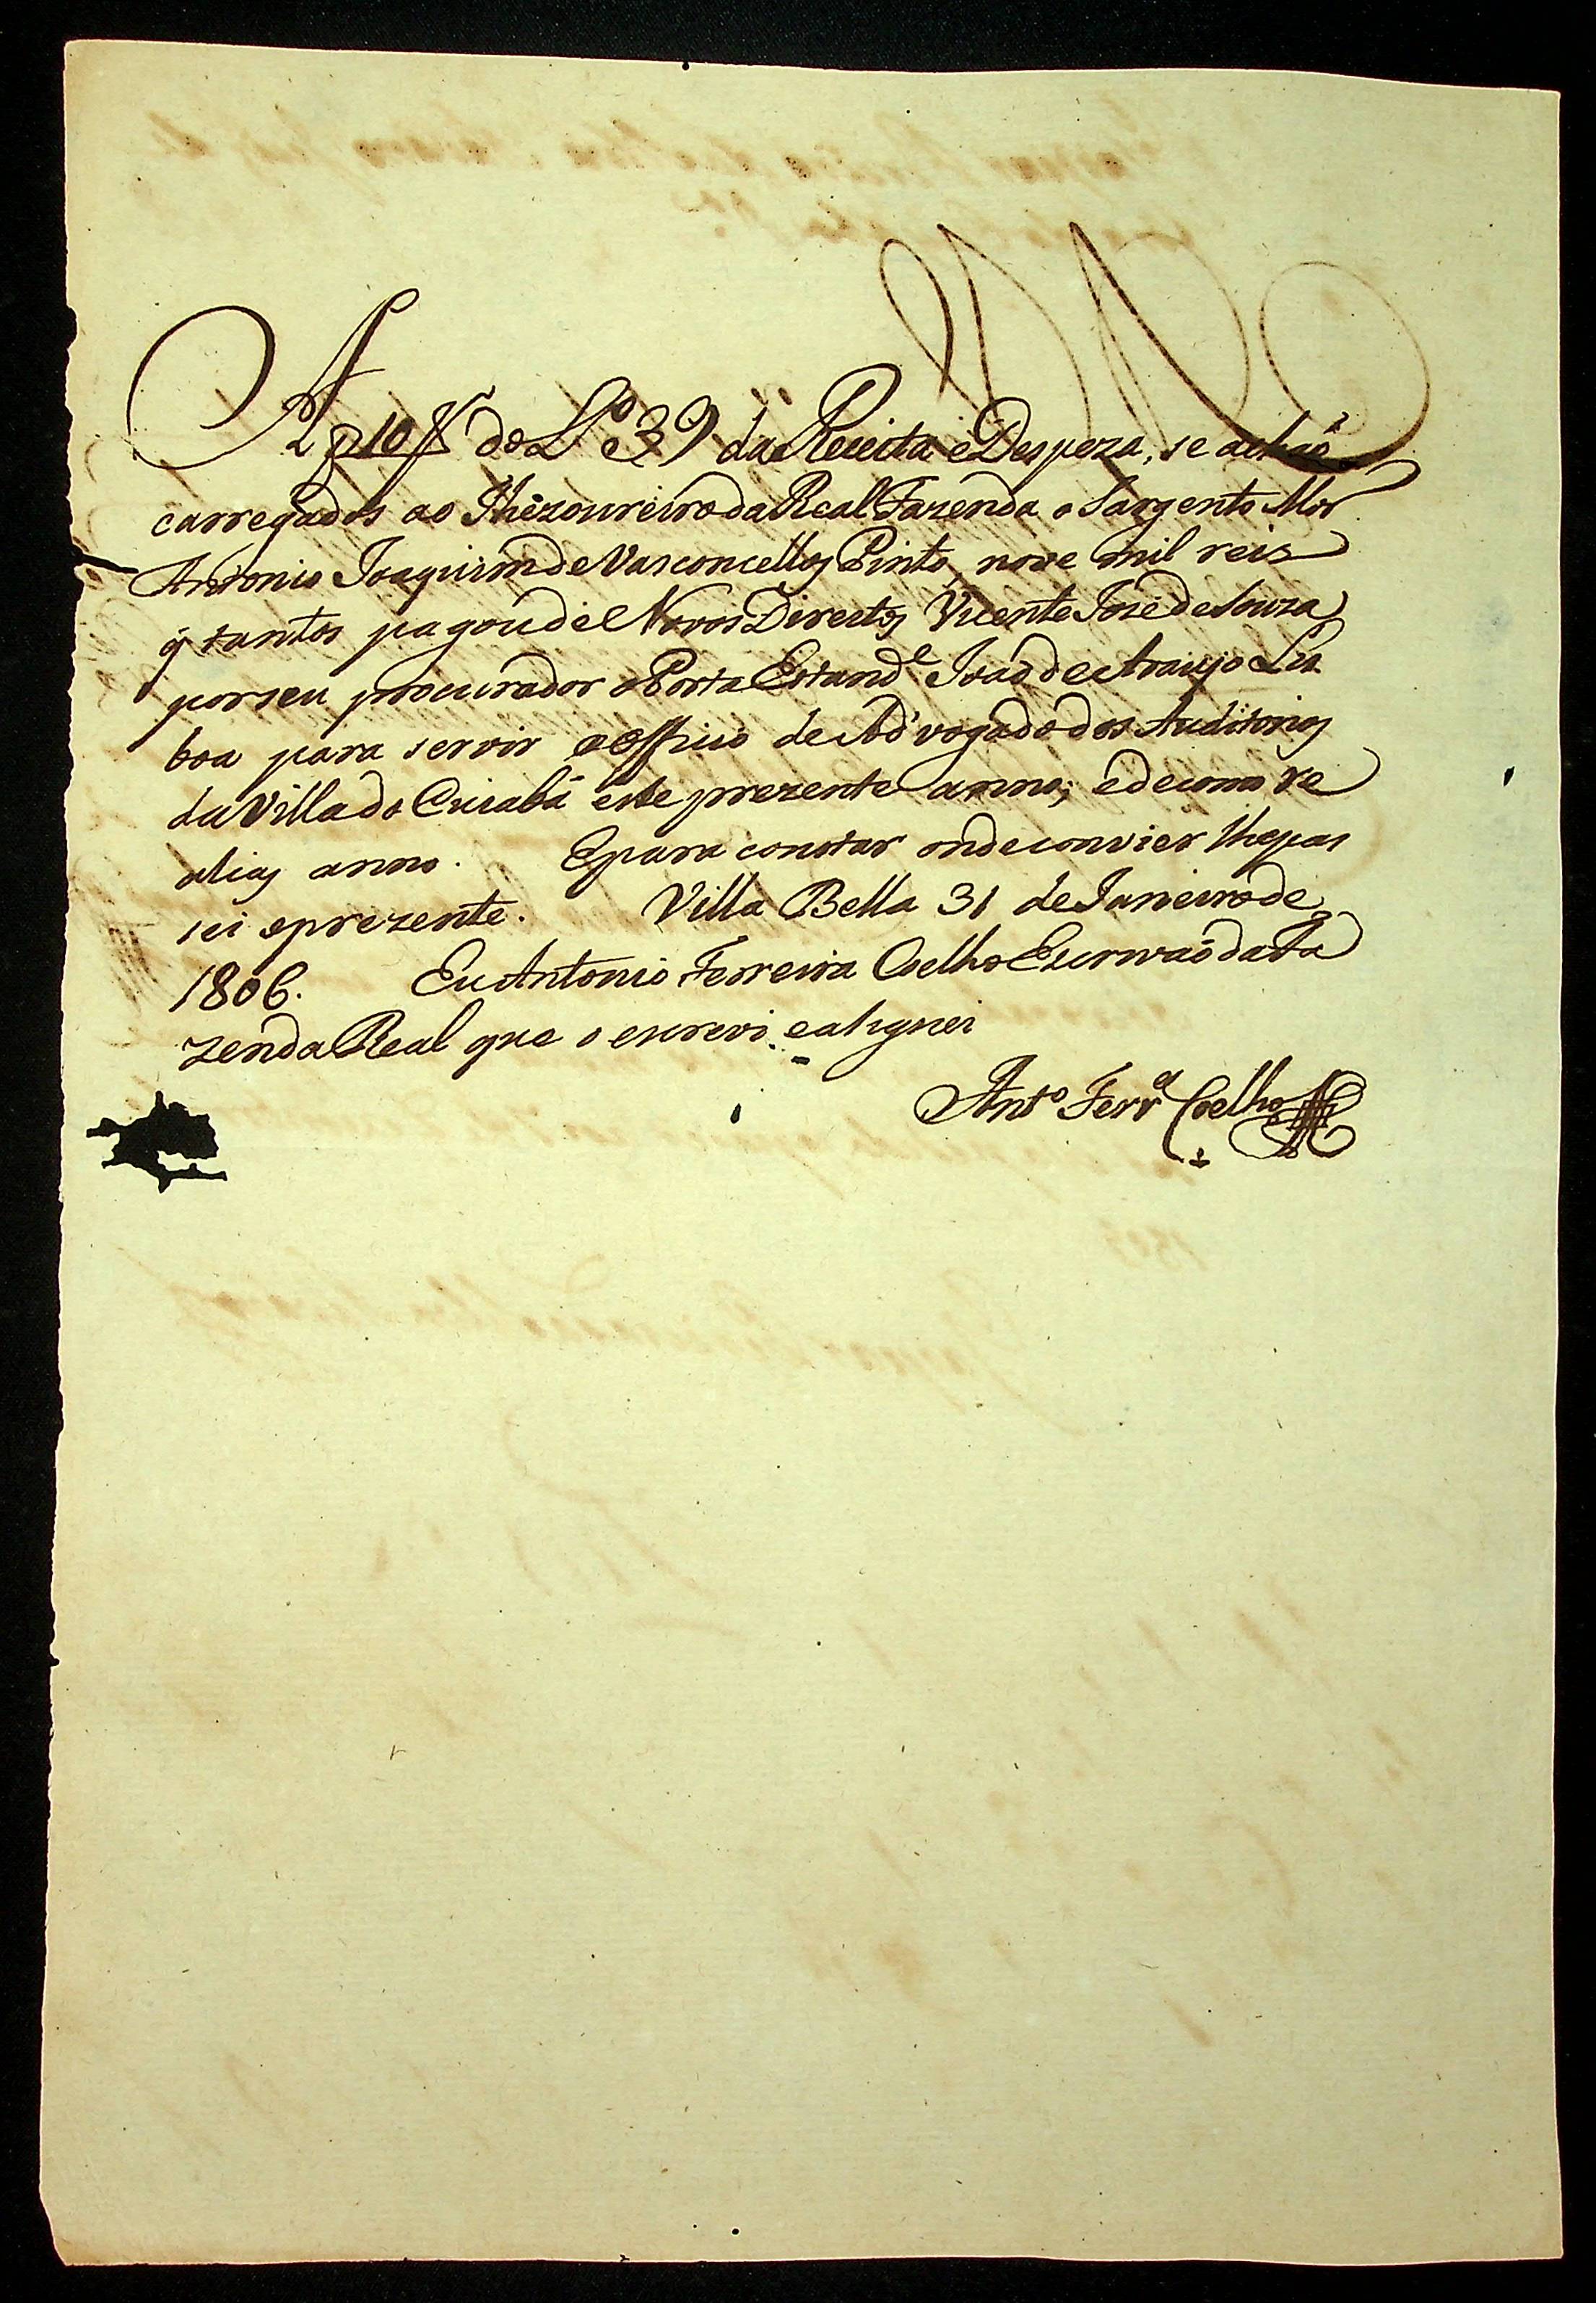 A p 10 V do Lº 39 da Receita e Despeza, se achaõ
carregados ao Thezoureiro da Real Fazenda o Sargento Mor
Antonio Joaquim de Vasconcellos Pinto, nove mil reis
q̃ tantos pagou de Novos Direitos Vicente José de Souza
por seu procurador o Porta Estandᵉ Joaõ de Araujo Lis
boa para servir o officio de Advogado dos Auditorios
da Villa do Cuiabá este prezente anno; e de como se
alias anno. E para constar onde convier lhe pas
sei o prezente. Villa Bella 31 de Janeiro de
1806. Eu Antonio Ferreira Coelho Escrivaõ da Fa
zenda Real que o escrevi e asignei
Antº Ferrª Coelho